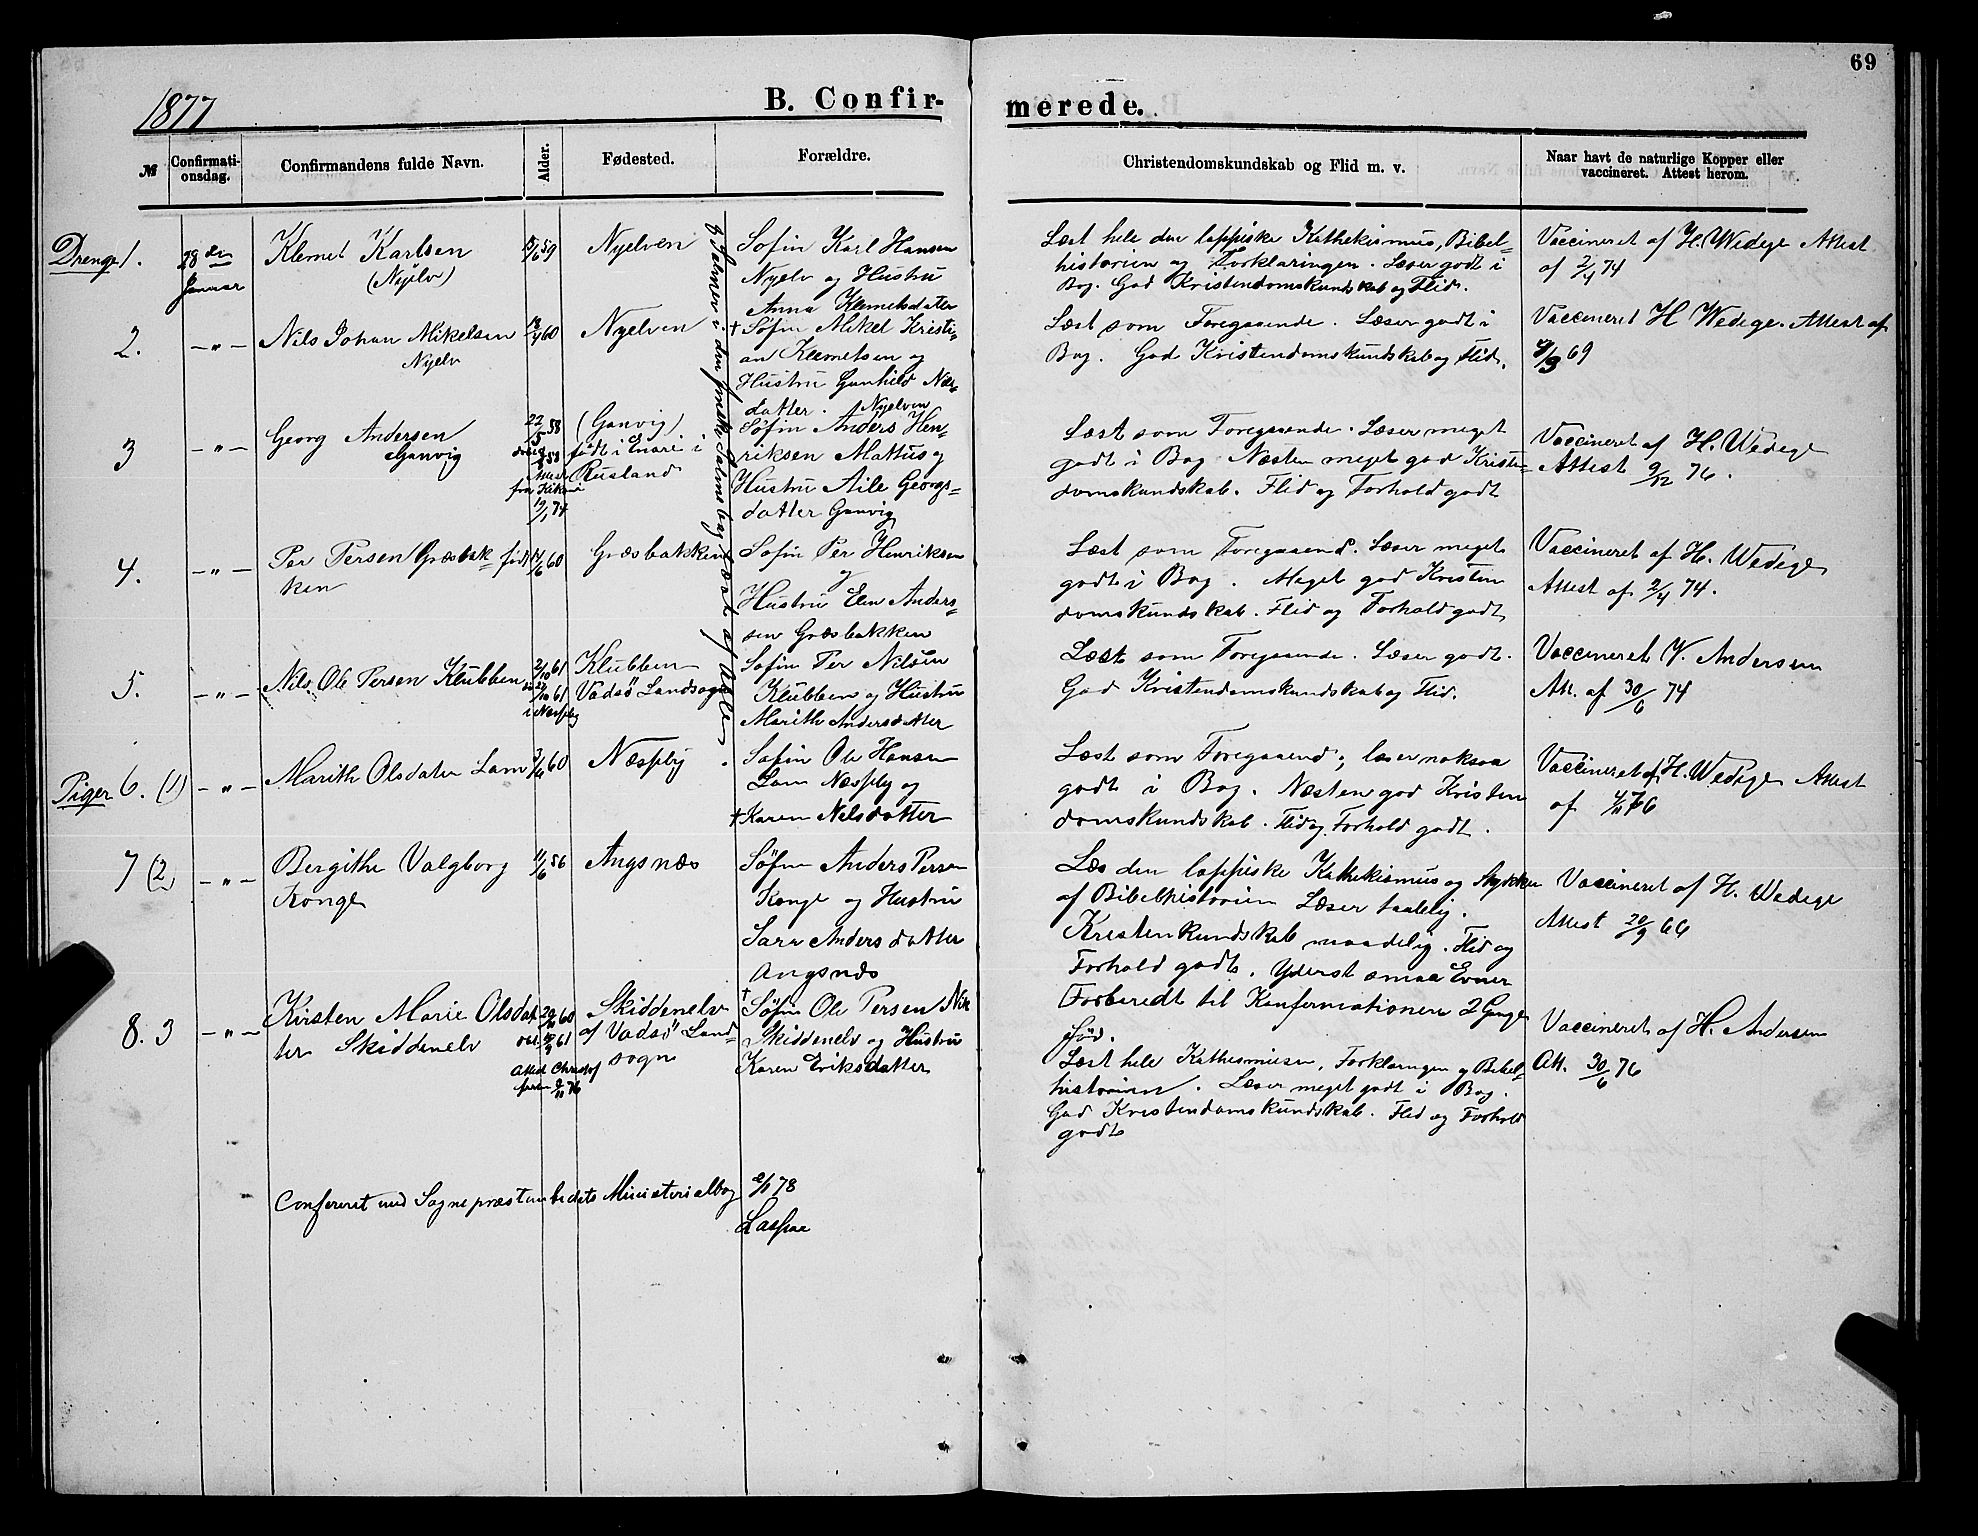 69
1877
B. Confirmerede.
№
Confirmationsdag.
Confirmandens fulde Navn.
Alder.
Fødested.
Forældre.
Christendomskundskab og Flid m. v.
Naar havt de naturlige Kopper eller
vaccineret. Attest herom.
Drenge 1.
28de
Januar
Klemet Karlsen
(Nyelv)
59
Nyelven
Søfin Karl Hansen
Nyelv og Hustru
Anna Klemetsdatter
Læst hele den lappiske Kathekismus, Bibel-
historien og Forklaringen. Læser godt i
Bog. God Kristendomskundskab og Flid.
Vaccineret af H. Wedege Attest
af 2/4 74
2.
— " —
Nils Johan Mikelsen
Nyelv
60
Nyelven
† Søfin Mikel Kristi-
an Klemetsen og
Hustru Gunhild
datter. Nyelven
Læst som Foregaaende. Læser godt i
Bog. God Kristendomskundskab og Flid.
Vaccineret H Wedege. Attest af
69
3
— " —
Georg Andersen
Ganvig
22/5 58
12/1 74
(Ganvig)
født i Enari i
Rusland
Søfin Anders Hen-
riksen Mattus og
Hustru Aile Georgs-
datter Ganvig
Læst som Foregaaende. Læser meget
godt i Bog. Næsten meget god Kristen-
domskundskab. Flid og Forhold godt
Vaccineret af H. Wedege
Attest 9/12 76.
4.
— " —
Per Persen Græsbak-
ken
født 60
Græsbakken
Søfin Per Henriksen
og
Hustru Elen Anders-
sen Græsbakken
Læst som Foregaaend. Læser meget
godt i Bog. Meget god Kristen
domskundskab. Flid og Forhold godt
Vaccineret af H. Wedege
Attest af 2/4 74.
5.
— " —
Nils Ole Persen Klubben
2/10 61
i Næsseby
Klubben
Vadsö Landsogn
Søfin Per Nilsen
Klubben og Hustru
Marith Andersdatter
Læst som Foregaaende. Læser godt.
God Kristendomskundskab og Flid.
Vaccineret V. Andersen
Att. af 30/6 74
Piger 6. (1)
— " —
Marith Olsdatter Lam
3/4 60
Næsseby
Søfin Ole Hansen
Lam Næsseby og
† Karen Nilsdatter
Læst som Foregaaend; læser noksaa
godt i Bog. Næsten god Kristen
domskundskab. Flid og Forhold godt.
Vaccineret af H. Wedege Attest
af 76
7 (2)
— " —
Bergithe Valgborg
Konge
11/6 56
Angsnæs
Søfin Anders Persen
Konge og Hustru
Sara Andersdatter
Angsnæs
Læs den lappiske Kathekismus og Stykker
af Bibelhistorien Læser taalelig.
Kristenkundskab maadelig. Flid og
Forhold godt. Yderst smaa Evner
Forberedt til Konfirmationen 2 Gange
før.
Vaccineret af H. Wedege
Attest 20/9 66
8. 3
— " —
Kirsten Marie Olsdat-
ter Skiddenelv
60
61
Attest
76
Skiddenelv
af Vadsö Land-
sogn
† Søfin Ole Persen
Skiddenelv og Hustru
Karen Eriksdatter
Læst hele Kathesmusen, Forklaringen og Bibel-
historien. Læser meget godt i Bog.
God Kristendomskundskab. Flid og Forhold
godt
Vaccineret af H. Andersen
Att. 30/6 76
Confereret med Sognepræstembedets Ministerialbog 2/1 78